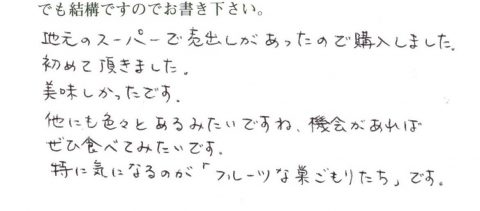 でも結構ですのでお書き下さい。
地元のスーパーで売出しがあったので購入しました.
初めて頂きました.
美味しかったです.
他にも色々とあるみたいですね、機会があれば
ぜひ食べてみたいです.
特に気になるのが「フルーツな巣ごもりたち」です。